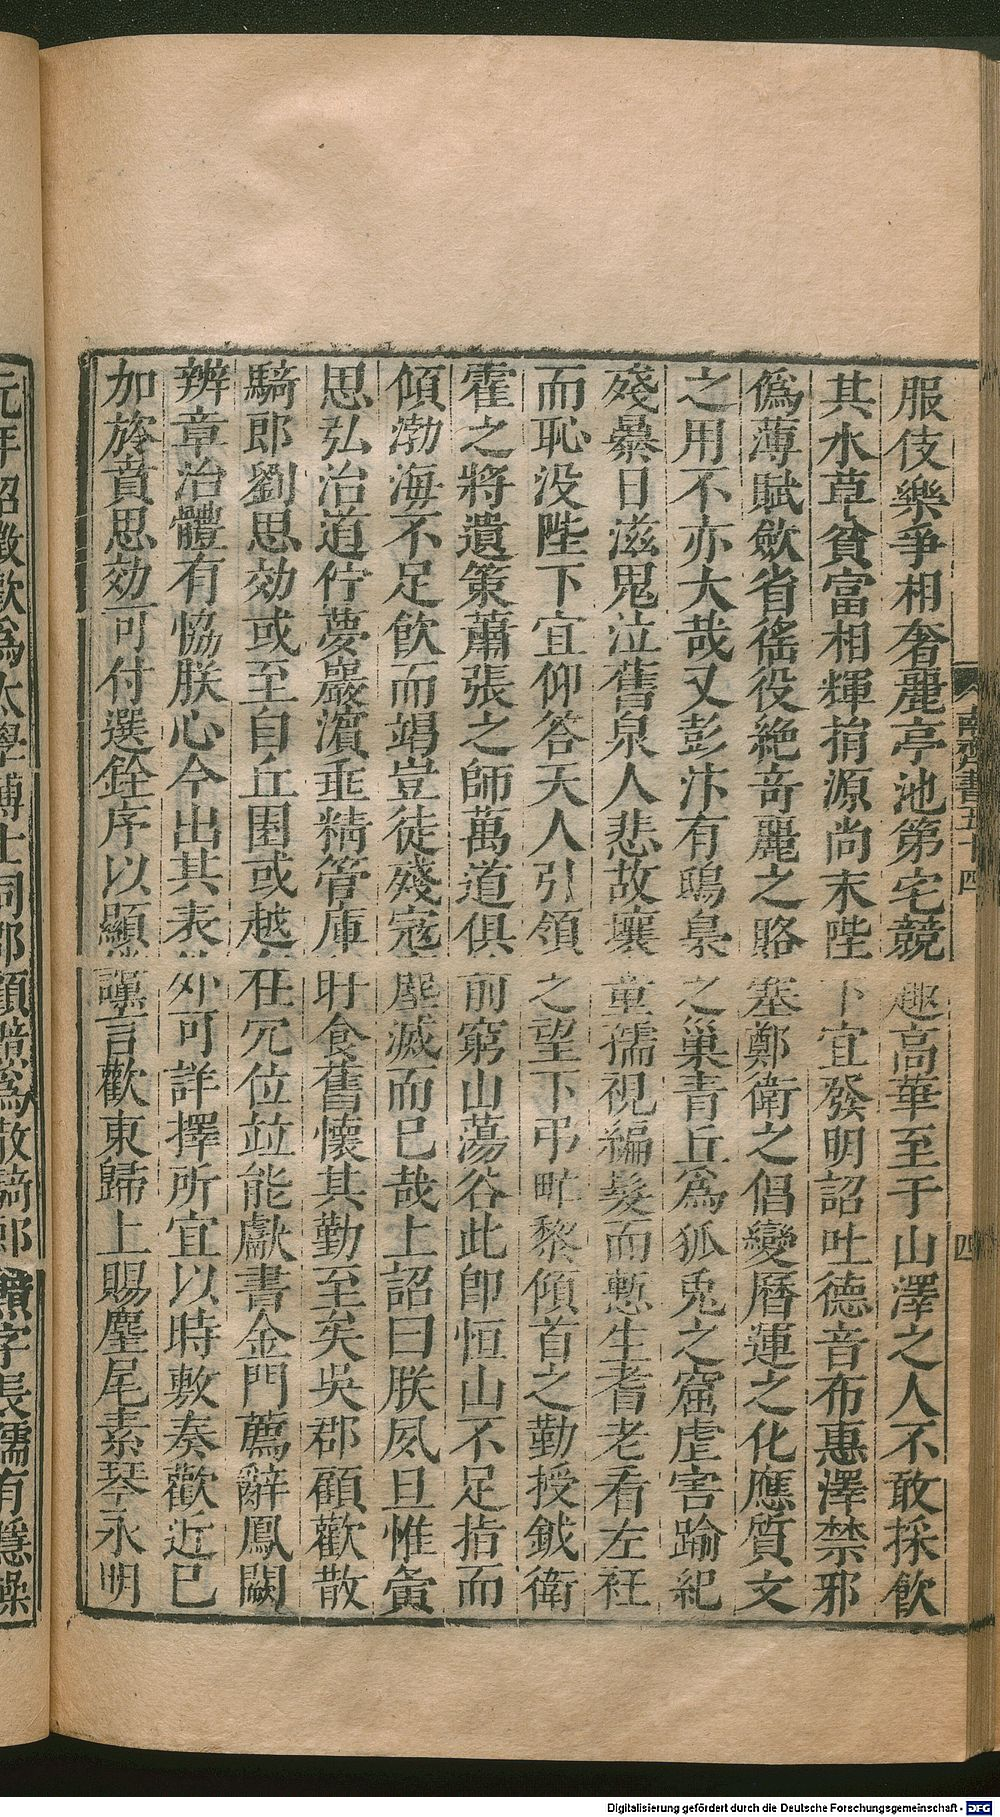 服伎樂爭相奢麗亭池第宅競趣高華至于山澤之人不敢採飲
其水草貧富相輝捐源尚末陛下宜發明詔吐德音布惠澤禁邪
僞薄賦歛省徭役絶奇麗之賂塞鄭衛之倡變曆運之化應質文
之用不亦大哉又彭汴有鴟梟之巢青丘爲狐兎之窟虐害踰紀
殘暴日滋鬼泣舊泉人悲故壤童孺視編髮而慙生耆老看左衽
而恥没陛下宜仰答天人引領之望下弔甿黎傾首之勤授鉞衛
霍之將遺策蕭張之師萬道俱前窮山蕩谷此即恒山不足指而
傾渤海不足飲而竭豈徒殘寇塵滅而已哉上詔曰朕夙旦惟夤
思弘治道佇夢巖濵垂精管庫旰食舊懷其勤至矣吳郡顧歡散
騎郎劉思効或至自丘園或越在冗位竝能獻書金門薦辭鳳闕
辨章治體有協朕心今出其表外可詳擇所宜以時敷奏歡近已
加旍賁思効可付選銓序以顯讜言歡東歸上賜麈尾素琴永明
元年詔徵歡爲太學博士同郡顧黯爲散騎郎黯字長孺有隱操
南齊書五十四
四
Digitalisierung gefördert durch die Deutsche Forschungsgemeinschaft - DFG